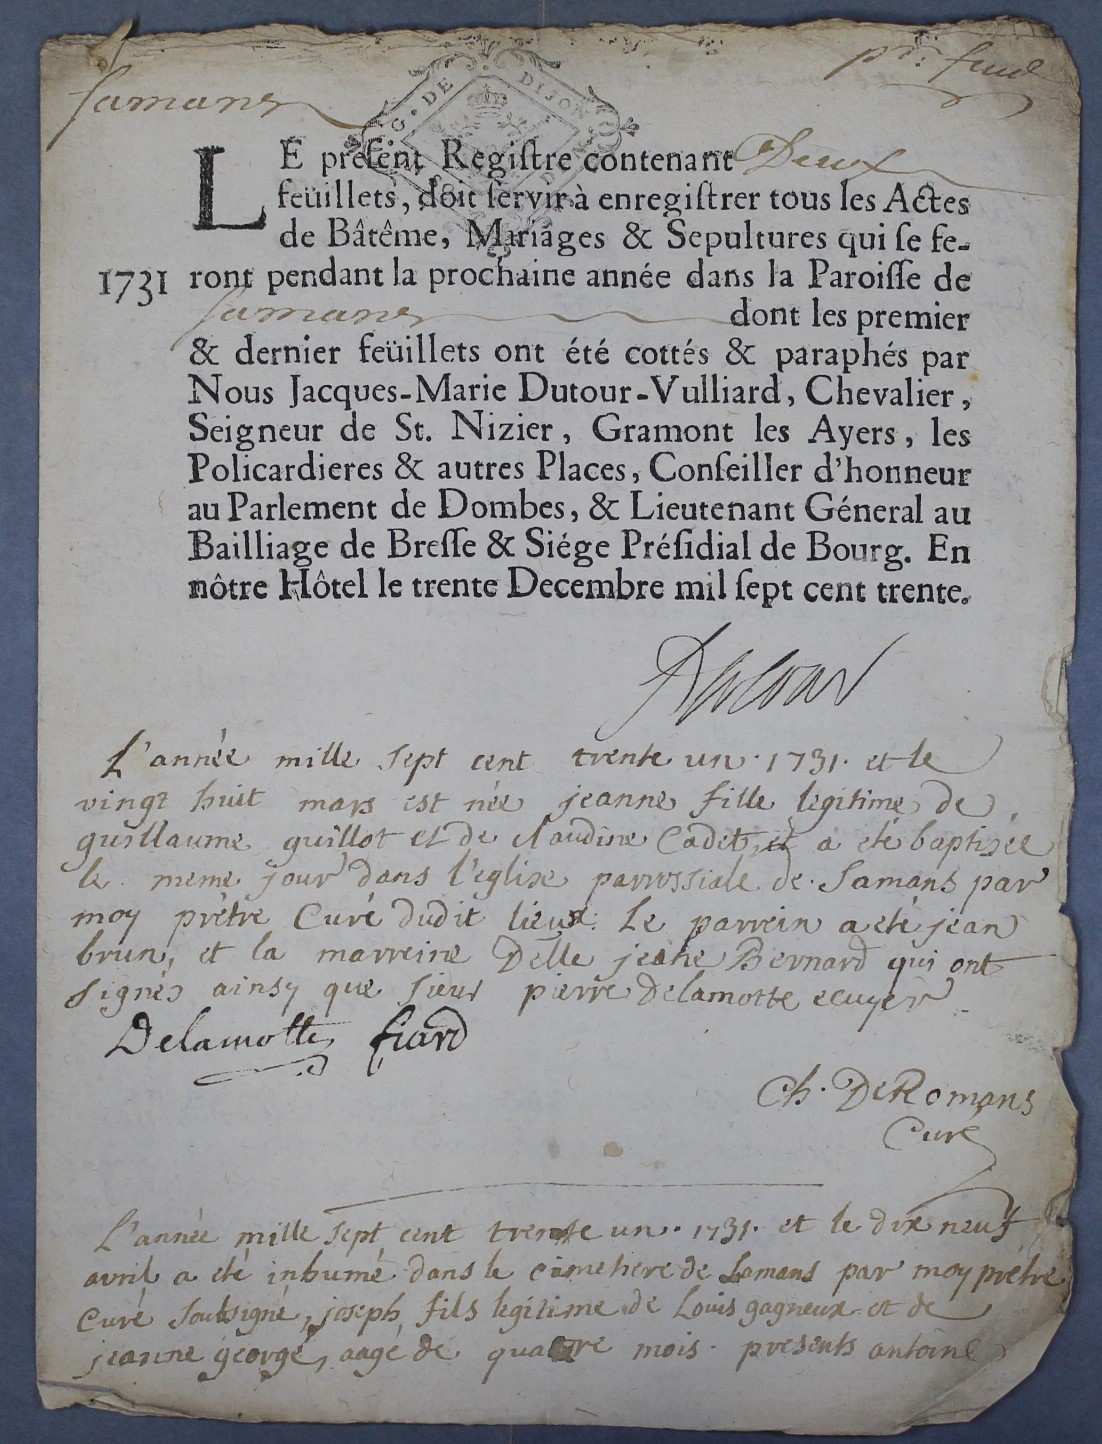 Samans
pr. feuil
G. DE DIJON
LE présent Registre contenant Deux
feüillets, doit servir à enregistrer tous les Actes
de Bâtême, Mariages & Sepultures qui se fe-
1731 ront pendant la prochaine année dans la Paroisse de
Samans dont les premier
& dernier feüillets ont été cottés & paraphés par
Nous Jacques-Marie Dutour-Vulliard, Chevalier,
Seigneur de St. Nizier, Gramont les Ayers, les
Policardieres & autres Places, Conseiller d'honneur
au Parlement de Dombes, & Lieutenant Géneral au
Bailliage de Bresse & Siége Présidial de Bourg. En
nôtre Hôtel le trente Decembre mil sept cent trente.
L'année mille sept cent trente un. 1731. et le
vingt huit mars est née jeanne fille legitime de
guillaume guillot et de claudine Cadet, et a eté baptisée
le meme jour dans l'eglise parrossiale de Samans par
moy prêtre Curé dudit lieux. Le parrein a eté jean
brun, et la marreine Delle jeane Bernard qui ont
signés ainsy que sieur pierre Delamotte ecuyer
Delamotte fiard
Ch. DeRomans
Curé
L'année mille sept cent trente un. 1731. et le dix neuf
avril a eté inhumé dans le cimetiere de Samans par moy prêtre
Curé soussigné, joseph fils legitime de Louis gagneux et de
jeanne george, aagé de quatre mois. presents antoine